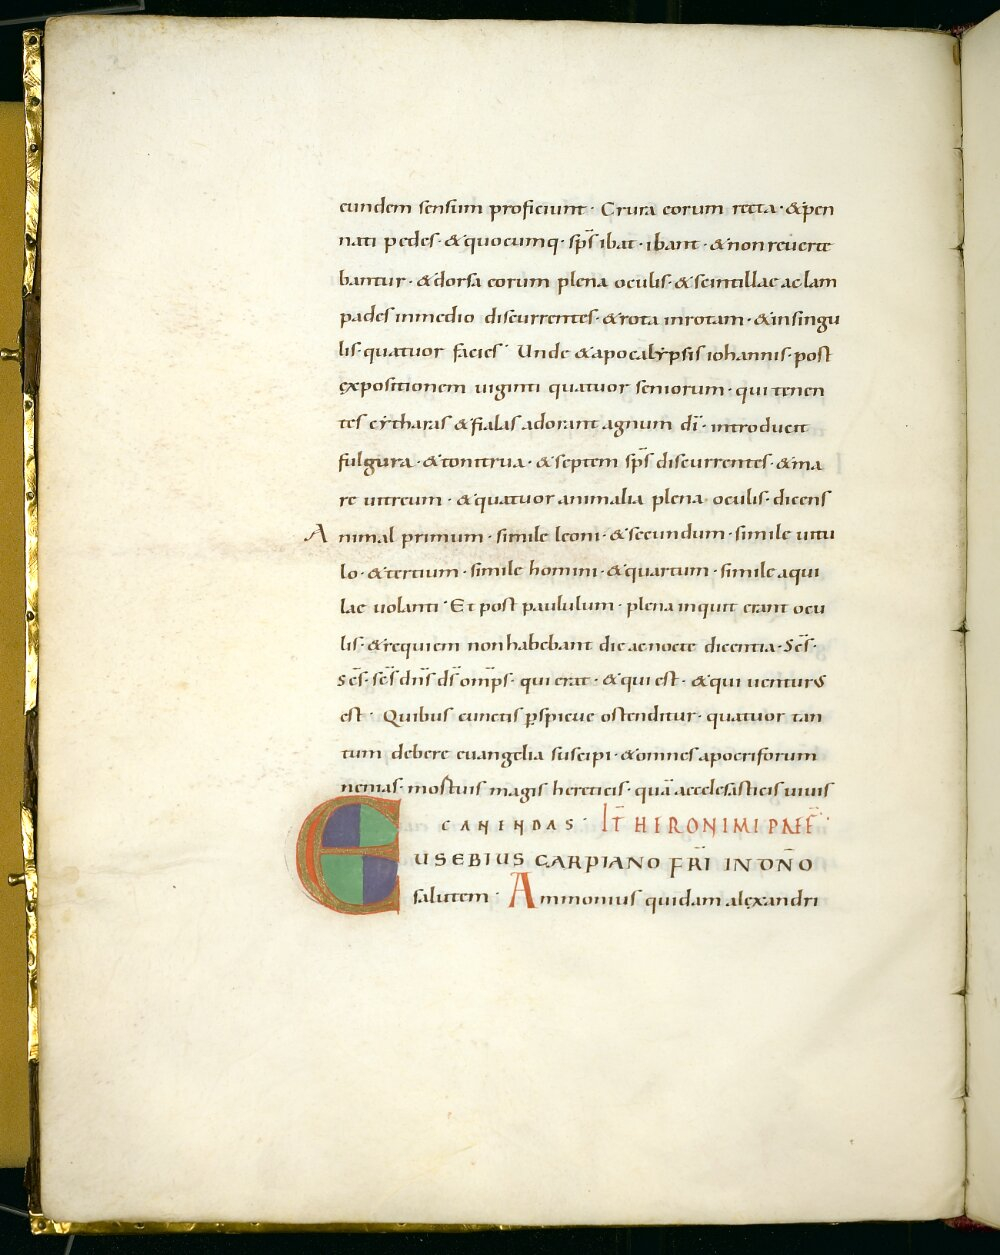 eundem sensum proficiunt · Crura eorum recta · &pen
nati pedes · &quocumq · sp̄s ibat · ibant · &nonreuerte
bantur · &dorsa eorum plena oculis · &scintillae aclam
pades inmedio discurrentes · &rota inrotam · &insingu
lis · quatuor facies · Unde &apocalẏpsis iohannis · post
expositionem uiginti quatuor seniorum · qui tenen
tes cẏtharas &fialas adorant agnum dī · introducit
fulgura · &tonitrua · &septem sp̄s discurrentes · &ma
re uitreum · &quatuor animalia plena oculis · dicens
Animal primum · simile leoni · &secundum · simile uitu
lo · &tertium · simile homini · &quartum · simile aqui
lae uolanti · Et post paululum · plena inquit erant ocu
lis · &requiem nonhabebant die acnocte dicentia · Sc̄s ·
sc̄s · sc̄s dn̄s ds̄ omp̄s · qui erat · &qui est · &qui uenturus
est · Quibus cunctis ꝑspicue ostenditur · quatuor tan
tum debere euangelia suscipi · &omnes apocriforum
nenias · mortuis magis hereticis · quā aecclesiasticis uiuis
CANENDAS · IT̄ HIERONIMI PREF̄ ·
EUSEBIUS CARPIANO FR̄I IN DN̄O
salutem · Ammonius quidam alexandri